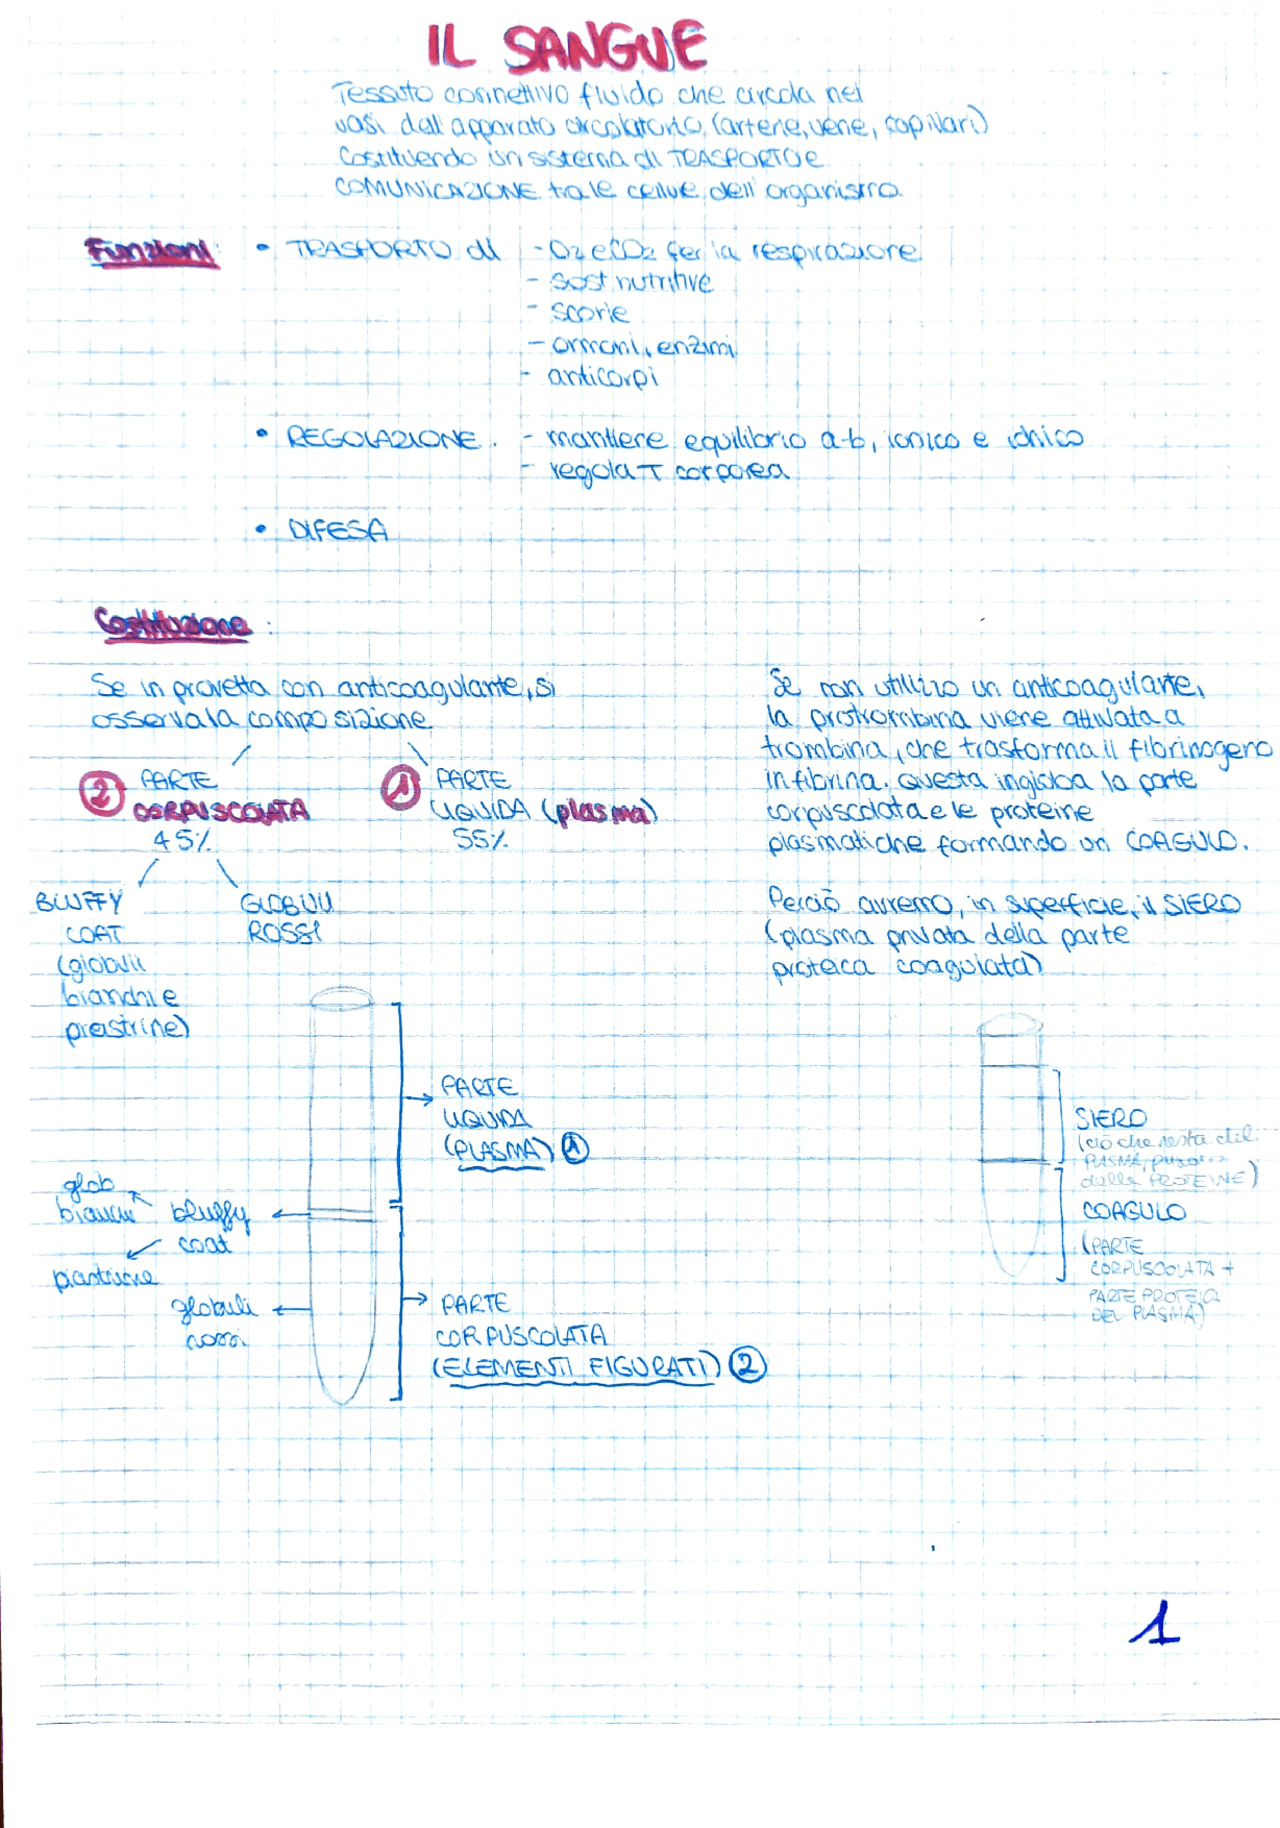 IL SANGUE
Tessuto connettivo fluido che circola nei
vasi dell'apparato circolatorio (arterie, vene, capillari)
costituendo un sistema di TRASPORTO e
COMUNICAZIONE tra le cellule dell'organismo.
Funzioni: • TRASPORTO di - O₂ e CO₂ per la respirazione
- sost nutritive
- scorie
- ormoni, enzimi
- anticorpi
• REGOLAZIONE. - mantiene equilibrio a-b, ionico e idrico
- regola T corporea
• DIFESA
Costituzione:
Se in provetta con anticoagulante, si
osserva la composizione
② PARTE
CORPUSCOLATA
45%
① PARTE
LIQUIDA (plasma)
55%
BLUFFY
COAT
(globuli
bianchi e
piastrine)
GLOBULI
ROSSI
Se non utilizzo un anticoagulante,
la protrombina viene attivata a
trombina, che trasforma il fibrinogeno
in fibrina. Questa ingloba la parte
corpuscolata e le proteine
plasmatiche formando un COAGULO.
Perciò avremo, in superficie, il SIERO
(plasma privata della parte
proteica coagulata)
PARTE
LIQUIDA
(PLASMA) ①
glob
bianchi
bluffy
coat
piastrine
globuli
rossi
PARTE
CORPUSCOLATA
(ELEMENTI FIGURATI) ②
SIERO
(ciò che resta del
PLASMA,
dalle PROTEINE)
COAGULO
(PARTE
CORPUSCOLATA +
PARTE PROTEICA
DEL PLASMA)
1